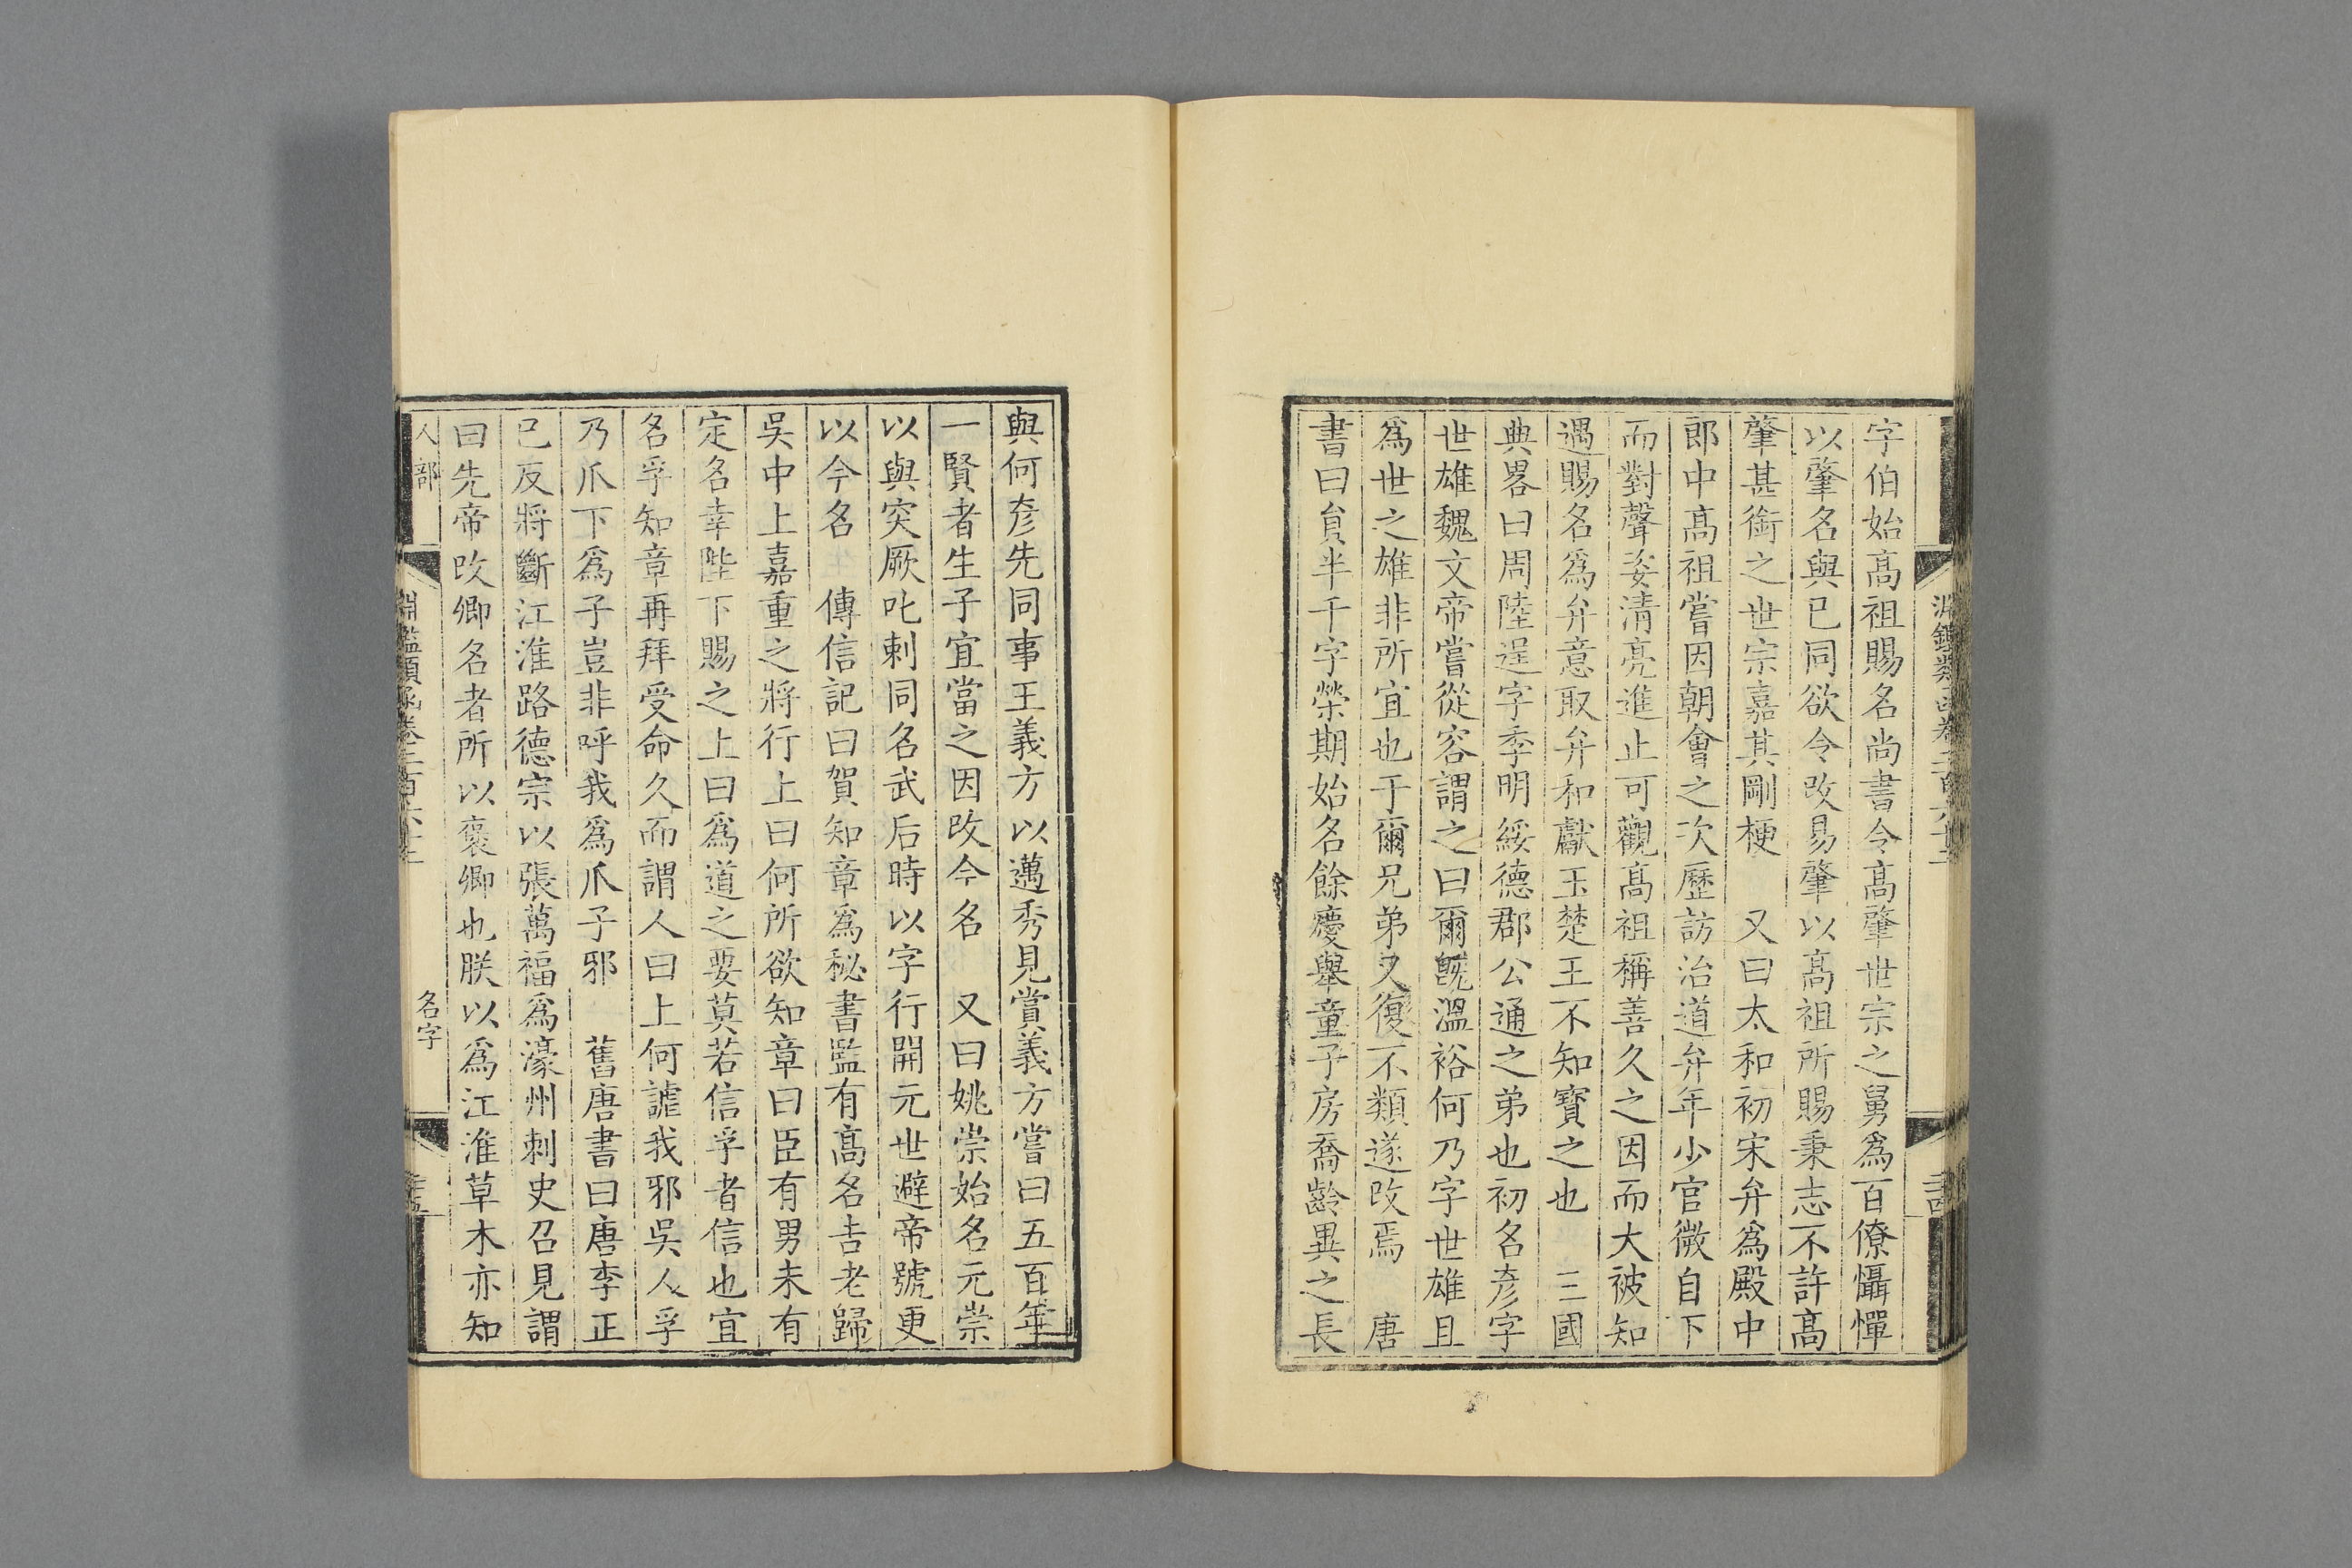 字伯始高祖賜名尚書令高肇世宗之舅爲百僚懾憚
以肇名與已同欲令改易肇以高祖所賜秉志不許高
肇甚銜之世宗嘉其剛梗　又曰太和初宋弁爲殿中
郎中高祖嘗因朝會之次歷訪治道弁年少官微自下
而對聲姿清亮進止可觀高祖稱善久之因而大被知
遇賜名爲弁意取弁和獻玉楚王不知寶之也　三國
典畧曰周陸逞字季明綏德郡公通之弟也初名彥字
世雄魏文帝嘗從容謂之曰爾旣溫裕何乃字世雄且
爲世之雄非所宜也于爾兄弟又復不類遂改焉　唐
書曰員半千字榮期始名餘慶舉童子房喬齡異之長
與何彥先同事王義方以邁秀見賞義方嘗曰五百年
一賢者生子宜當之因改今名　又曰姚崇始名元崇
以與突厥叱刺同名武后時以字行開元世避帝號更
以今名　傳信記曰賀知章爲秘書監有高名告老歸
吳中上嘉重之將行上曰何所欲知章曰臣有男未有
定名幸陛下賜之上曰爲道之要莫若信孚者信也宜
名孚知章再拜受命久而謂人曰上何謔我邪吳人孚
乃爪下爲子豈非呼我爲爪子邪　舊唐書曰唐李正
已反將斷江淮路德宗以張萬福爲濠州刺史召見謂
曰先帝改卿名者所以褒卿也朕以爲江淮草木亦知
人部
淵鑑類函卷二百六十二
名字